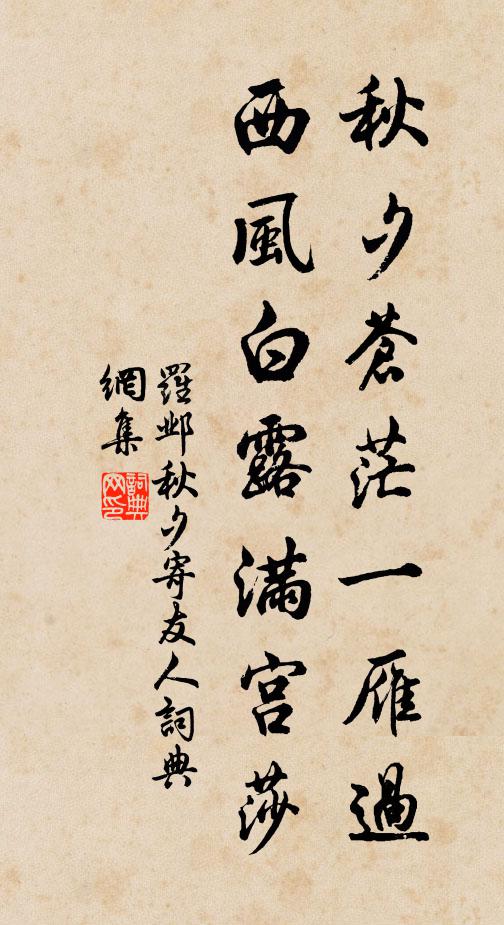 秋夕蒼茫一雁過
西風白露滿宮莎
羅鄴秋夕寄友人詞典
網集
詞典
网印